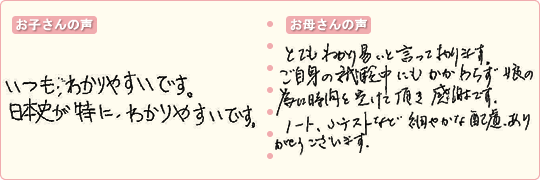 お子さんの声
いつも、わかりやすいです。
日本史が特に、わかりやすいです。
お母さんの声
とてもわかり易いと言っております。
ご自身の試験中にもかかわらず娘の
為に時間を空けて頂き感謝です。
ノート、小テストなど細やかな配慮、あり
がとうございます。